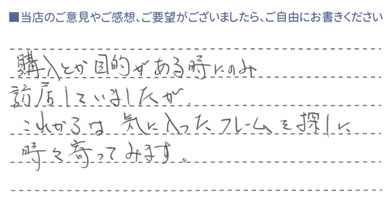 ■当店のご意見やご感想、ご要望がございましたら、ご自由にお書きください
購入とか目的がある時にのみ
訪店していましたが
これからは 気に入ったフレームを探しに
時々寄ってみます。